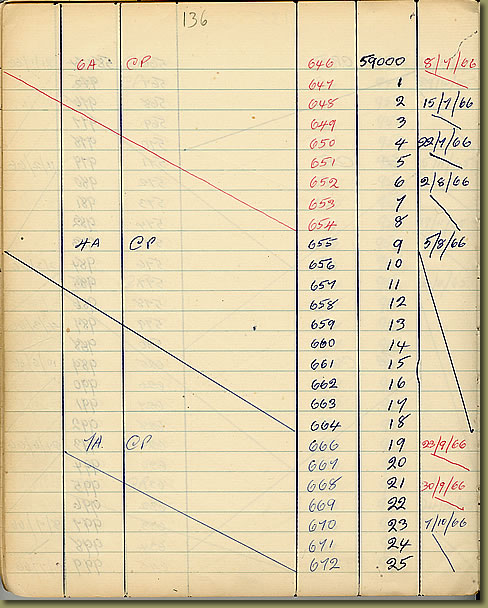 136
6A CP 646 59000 8/7/66
647 1
648 2 15/7/66
649 3
650 4 22/7/66
651 5
652 6 2/8/66
653 7
654 8
4A CP 655 9 5/8/66
656 10
657 11
658 12
659 13
660 14
661 15
662 16
663 17
664 18
7A CP 666 19 23/9/66
667 20
668 21 30/9/66
669 22
670 23 7/10/66
671 24
672 25